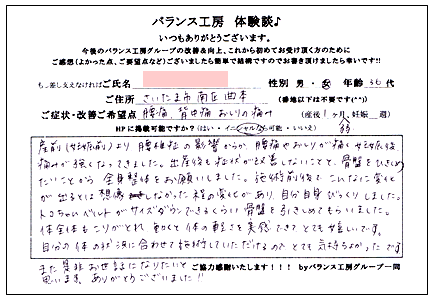 バランス工房 体験談♪
いつもありがとうございます。
今後のバランス工房グループの改善&向上、これから初めてお受け頂く方のために
ご感想(よかった点、ご要望点など)ございましたら簡単で結構ですのでお書き頂けましたら幸いです!!
もし差し支えなければご氏名 性別 男・女 年齢 30 代
ご住所 さいたま市南区曲本 (番地以下は不要です(^^))
ご症状・改善ご希望点 腰痛、背中痛 おしりの痛み (産後 1 ヶ月、妊娠 週)
HPに掲載可能ですか?(はい・イニシャルなら可能・いいえ)
産前(妊娠前)より腰椎症の影響からか、腰痛やおしりが痛く妊娠後
痛みが強くなってきました。出産後も症状が改善しないことと、骨盤をひきしめ
たいことから全身整体をお願いしました。施術前後でこんなに変化
が出るとは想像しなかった程の変化があり、自分自身びっくりしました。
トコちゃんベルトがサイズダウンできるくらい骨盤を引きしめてもらいました。
体全体もこりがとれ、動くと体の軽さを実感できてとても嬉しいです。
自分の体の状況に合わせて施術していただけるのでとても気持ちよかったです
また是非お世話になりたいと
思います。ありがとうございました!!
ご協力感謝いたします!!! byバランス工房グループ一同